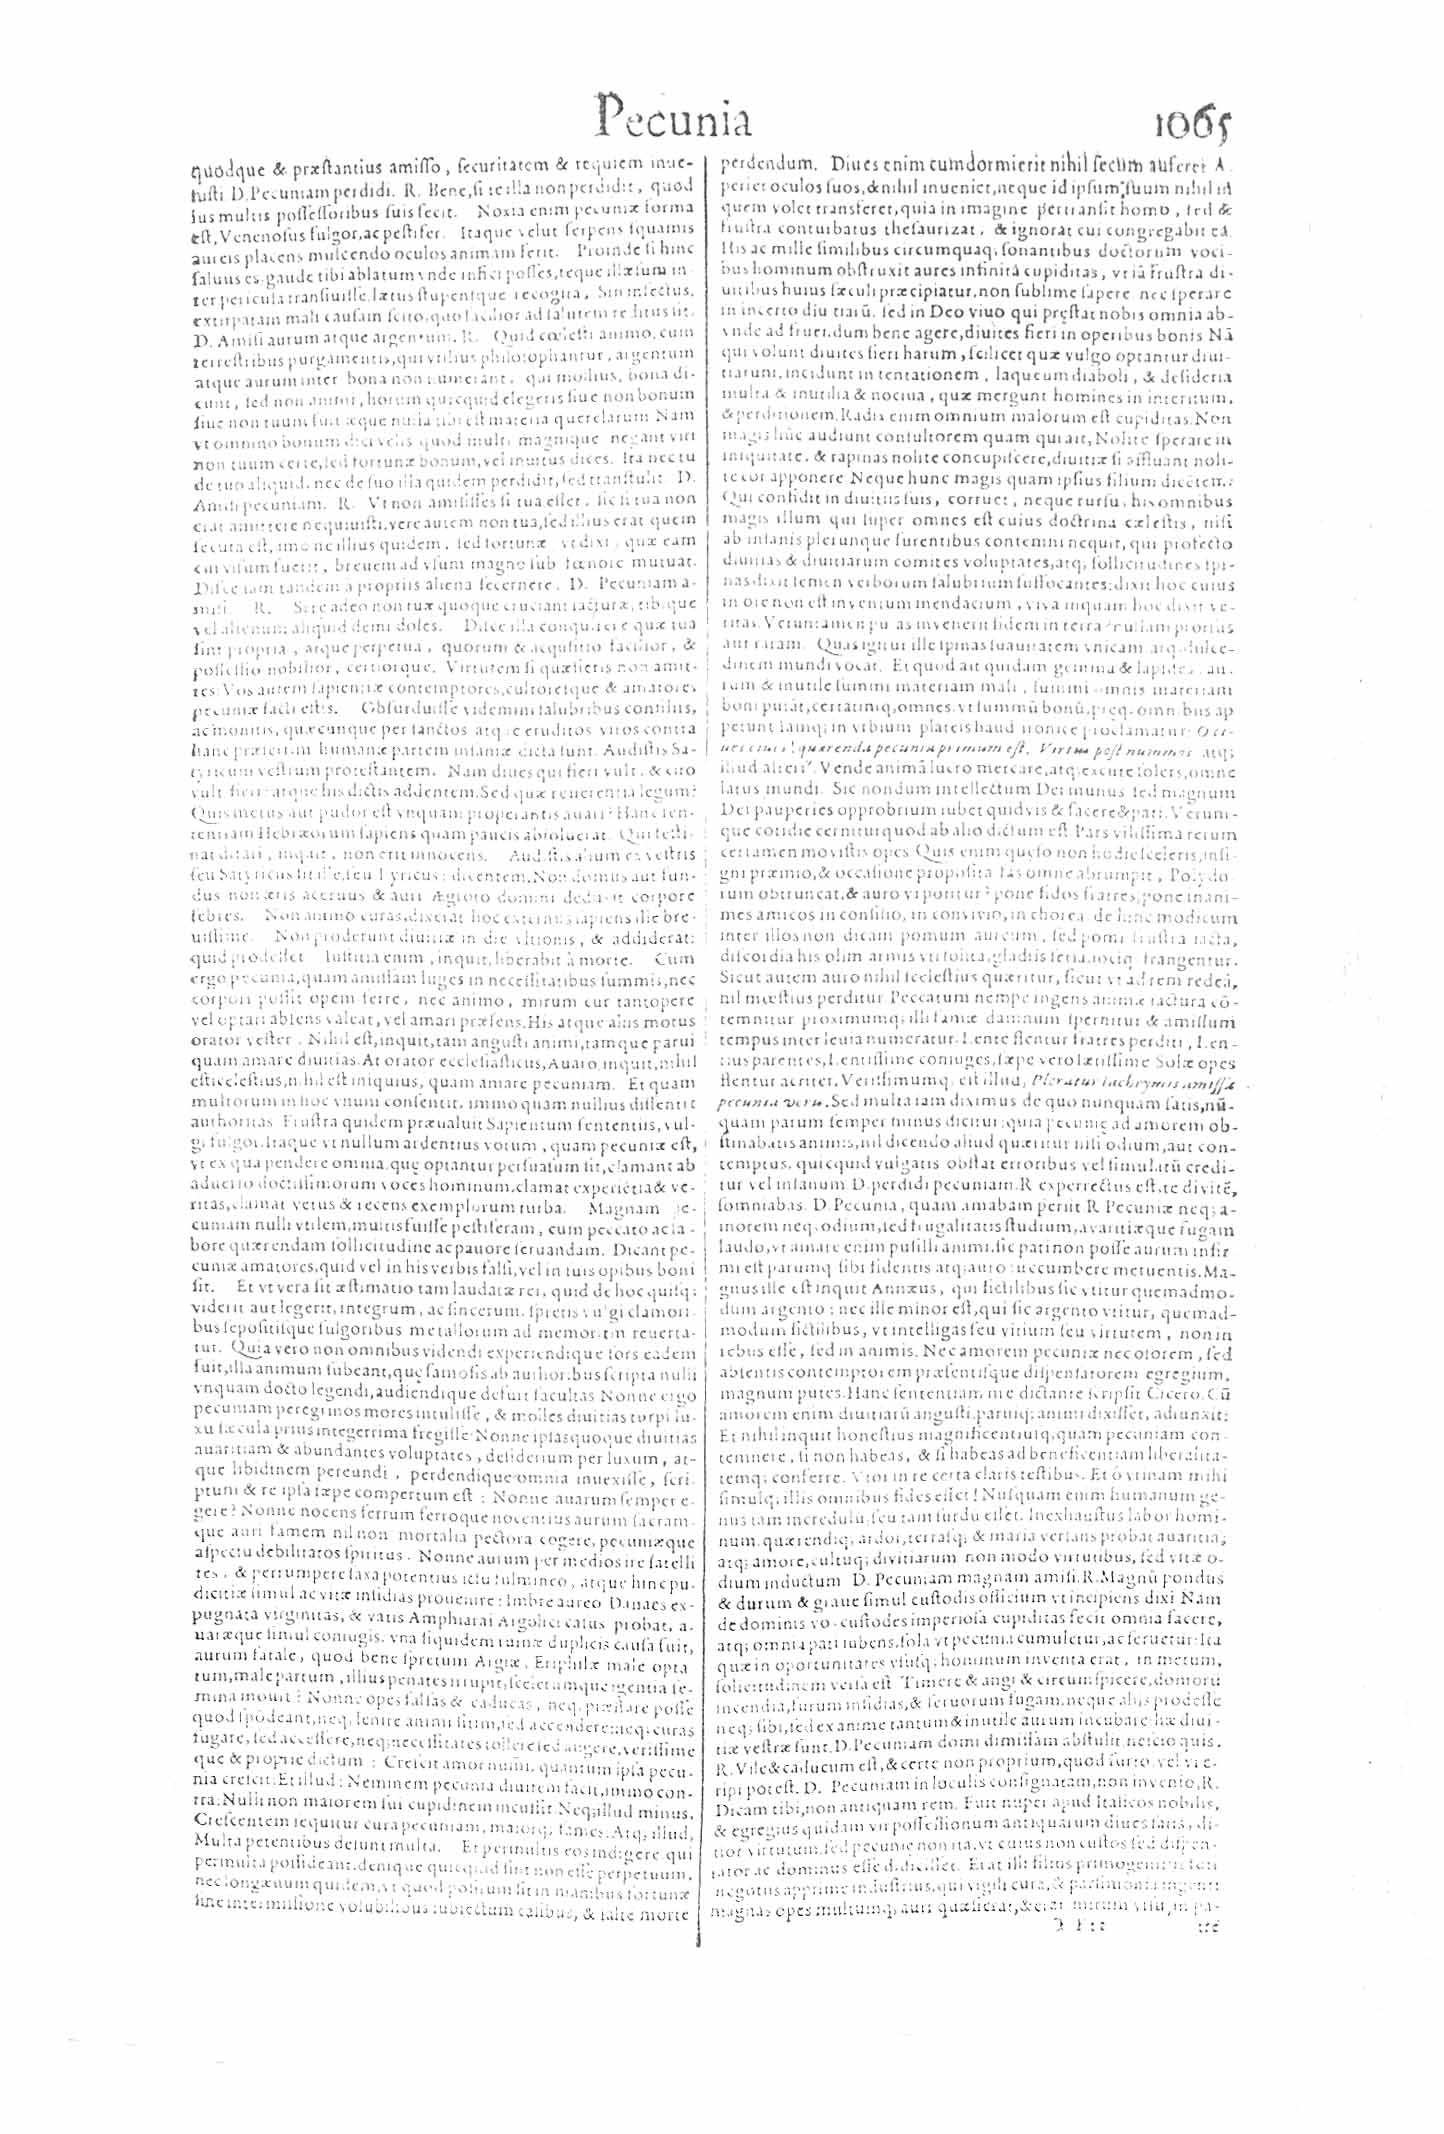 Pecunia 1065
quodque & præstantius amisso, securitatem & requiem inue-
nisti. D. Pecuniam perdidi. R. Bene, si te illa non perdidit, quod
ius multis possessoribus suis fecit. Noxia enim pecuniæ forma
est, Venenosus fulgor, ac pestifer. Itaque velut serpens squamis
aureis placens mulcendo oculos animam ferit. Proinde si hinc
saluus es, gaude tibi ablatum vnde infici posses, teque illæsum in-
ter pericula transiuisse, lætus stupensque recogita, Sin infectus,
extirpatam mali causam scito, quo facilior ad salutem reditus sit.
D. Amisi aurum atque argentum. R. Quid cœlesti animo, cum
terrestribus purgamentis, qui vtilius philosophantur, argentum
atque aurum inter bona non numerant, qui mollius, bona di-
cunt, sed non animi, horum quicquid elegeris siue non bonum
siue non tuum fuit æque nulla tibi est materia querelarum Nam
vt omnino bonum dici velis quod multi magnique negant viri
non tuum certe, sed fortunæ bonum, vel inuitus dices. Ita nec tu
de tuo aliquid, nec de suo illa quidem perdidit, sed transtulit. D.
Amisi pecuniam. R. Vt non amisisses si tua esset, sic si tua non
erat amittere nequiuisti, vere autem non tua, sed illius erat quem
secuta est, imo ne illius quidem, sed fortunæ vt dixi, quæ eam
cui visum fuerit, breuem ad vsum magno sub fœnore mutuat.
Disce iam tandem à propriis aliena secernere. D. Pecuniam a-
misi. R. Si te adeo non tuæ quoque cruciant iacturæ, tibique
vel alienum aliquid demi doles. Disce illa conquirere quæ tua
sint propria, atque perpetua, quorum & acquisitio facilior, &
possessio nobilior, certiorque. Virtutem si quæsieris non amit-
tes. Vos autem sapientiæ contemptores, cultoresque & amatores
pecuniæ facti estis. Obsurduisse videmini salubribus consiliis,
ac monitis, quæcunque per sanctos atque eruditos viros contra
hanc præsertim humanæ partem insaniæ dicta sunt. Audistis Sa-
tyricum vestrum protestantem. Nam diues qui fieri vult, & cito
vult fieri: atque his dictis addentem. Sed quæ reuerentia legum?
Quis metus aut pudor est vnquam properantis auari? Hanc sen-
tentiam Hebræorum sapiens quam paucis absoluerat. Qui festi-
nat ditari, inquit, non erit innocens. Audistis alium ex vestris
seu Satyricus sit ille, seu Lyricus: dicentem. Non domus aut fun-
dus non æris aceruus & auri Ægroto domini deduxit corpore
febres. Non animo curas, dixerat hoc externus sapiens ille bre-
uissime. Non proderunt diuitiæ in die vltionis, & addiderat:
quid prodesset Iustitia enim, inquit, liberabit à morte. Cum
ergo pecunia, quam amissam luges in necessitatibus summis, nec
corpori possit opem ferre, nec animo, mirum cur tantopere
vel optari absens valeat, vel amari præsens. His atque aliis motus
orator vester. Nihil est, inquit, tam angusti animi, tamque parui
quam amare diuitias. At orator ecclesiasticus, Auaro, inquit, nihil
est scelestius, nihil est iniquius, quam amare pecuniam. Et quam
multorum in hoc vnum consentit, immo quam nullius dissentit
authoritas Frustra quidem præualuit Sapientum sententiis, vul-
gi fulgor. Itaque vt nullum ardentius votum, quam pecuniæ est,
vt ex qua pendere omnia, que optantur persuasum sit, clamant ab
aduerso doctissimorum voces hominum, clamat experiẽtia & ve-
ritas, clamat vetus & recens exemplorum turba. Magnam pe-
cuniam nulli vtilem, multis fuisse pestiferam, cum peccato ac la-
bore quærendam sollicitudine ac pauore seruandam. Dicant pe-
cuniæ amatores, quid vel in his verbis falsi, vel in tuis opibus boni
sit. Et vt vera sit æstimatio tam laudatæ rei, quid de hoc quisq;
viderit aut legerit, integrum, ac sincerum, spretis vulgi clamori-
bus sepositisque fulgoribus metallorum ad memoriam reuerta-
tur. Quia vero non omnibus videndi experiendique sors eadem
fuit, illa animum subeant, quę famosis ab authoribus scripta nulli
vnquam docto legendi, audiendique defuit facultas Nonne ergo
pecuniam peregrinos mores intulisse, & molles diuitias turpi lu-
xu sæcula prius integerrima fregisse. Nonne ipsas quoque diuitias
auaritiam & abundantes voluptates, desiderium per luxum, at-
que libidinem pereundi, perdendique omnia inuexisse, scri-
ptum & re ipsa sæpe compertum est: Nonne auarum semper e-
gere? Nonne nocens ferrum ferroque nocentius aurum sacram-
que auri famem nil non mortalia pectora cogere, pecuniæque
aspectu debilitatos spiritus. Nonne aurum per medios ire satelli
tes, & perrumpere saxa potentius ictu fulmineo, atque hinc pu-
dicitiæ simul ac vitæ insidias prouenire: Imbre aureo Danaes ex-
pugnata virginitas, & vatis Amphiarai Argolici casus probat, a-
uaræque simul coniugis. vna siquidem ruinæ duplicis causa fuit,
aurum fatale, quod bene spretum Argiæ, Eriphilæ male opta
tum, male partum, illius penates irrupit, scelerumque igentia se-
mina mouit? Nonne opes falsas & caducas, neq; præstare posse
quod spõdeant, neq; lenire animi sitim, sed accendere: neq; curas
fugare, sed accessere, neq; necessitates tollere sed augere, verissime
que & proprie dictum: Crescit amor num̃i, quantum ipsa pecu-
nia crescit: Et illud: Neminem pecunia diuitem facit, immo con-
tra. Nulli non maiorem sui cupidinem incussit. Neq; illud minus,
Crescentem sequitur cura pecuniam, maiorq; fames. Atq; illud,
Multa petentibus desunt multa. Et permultis eos indigere, qui
permulta possideant, denique quicquid sint non esse perpetuum,
nec longæuum quidem, vt quod positum sit in manibus fortunæ
sine intermissione volubilibus subiectum casibus, & salte morte
perdendum. Diues enim cum dormierit nihil secum auferet A-
periet oculos suos, & nihil inueniet, neque id ipsum, suum nihil id
quem volet transferet, quia in imagine pertransit homo, sed &
frustra conturbatus thesaurizat, & ignorat cui congregabit eã.
His ac mille similibus circumquaq; sonantibus doctorum voci-
bus hominum obstruxit aures infinita cupiditas, vt iã frustra di-
uitibus huius sæculi præcipiatur, non sublime sapere nec sperare
in incerto diuitiarũ. sed in Deo viuo qui pręstat nobis omnia ab-
vnde ad fruẽdum bene agere, diuites fieri in operibus bonis Nã
qui volunt diuites fieri harum, scilicet quæ vulgo optantur diui-
tiarum, incidunt in tentationem, laqueum diaboli, & desideria
multa & inutilia & nociua, quæ mergunt homines in interitum,
& perditionem. Radix enim omnium malorum est cupiditas. Non
magis hũc audiunt consultorem quam qui ait, Nolite sperare in
iniquitate, & rapinas nolite concupiscere, diuitiæ si affluant noli-
te cor apponere Neque hunc magis quam ipsius filium dicẽtem:
Qui confidit in diuitiis suis, corruet, neque rursus his omnibus
magis illum qui super omnes est cuius doctrina cælestis, nisi
ab insanis plerunque furentibus contemni nequit, qui profecto
diuitias & diuitiarum comites voluptates, atq; sollicitudines spi-
nas dixit semen verborum salubrium suffocantes: dixit hoc cuius
in ore non est inventum mendacium, viva inquam hoc dixit ve-
ritas. Veruntamen putas invenerit fidem in terra? nullam prorsus
aut raram. Quas igitur ille spinas suauitatem vnicam, atq; dulce-
dinem mundi vocat. Et quod ait quidam gemma & lapides, au-
rum & inutile summi materiam mali, summi omnis materiam
boni putãt, certatimq; omnes, vt summũ bonũ, pręq; omnibus ap
petunt iamq; in vrbium plateis haud ironice proclamatur: O ci-
ues ciues! quærenda pecunia primum est, Virtus post nummos atq;
illud alteriꝰ. Vende animã lucro mercare, atq; excute solers, omne
latus mundi. Sic nondum intellectum Dei munus sed magnum
Dei pauperies opprobrium iubet quidvis & facere & pati. Verum-
que cotidie cernitur quod ab alio dictum est. Pars vilissima rerum
certamen movistis opes Quis enim queso non hodie sceleris, insi-
gni præmio, & occasione proposita fas omne abrumpit, Polydo-
rum obtruncat, & auro vi potitur? pone fidos fratres, pone inani-
mes amicos in consilio, in convivio, in chorea de hinc modicum
inter illos non dicam pomum aureum, sed pomi frustra iacta,
discordia his olim armis vti solita, gladiis seria, iociq; frangentur.
Sicut autem auro nihil scelestius quæritur, sicut vt ad rem redeã,
nil mœstius perditur. Peccatum nempe ingens animæ iactura cõ-
temnitur proximumq; illi famæ damnum spernitur & amissum
tempus inter leuia numeratur. Lente flentur fratres perditi, Len-
tius parentes, Lentissime coniuges, sæpe vero lætissime Solæ opes
flentur acriter. Verissimumq; est illud, Ploratur lachrymis amissa
pecunia veris. Sed multa iam diximus de quo nunquam satis, nũ-
quam parum semper minus dicitur: quia pecunię ad amorem ob-
stinabatis animis, nil dicendo aliud quæritur nisi odium, aut con-
temptus, quicquid vulgatis obstat erroribus vel simulatũ credi-
tur vel insanum. D. perdidi pecuniam. R experrectus est, te divitẽ,
somniabas. D. Pecunia, quam amabam periit R Pecuniæ neq; a-
morem neq; odium, sed frugalitatis studium, avaritiæque fugam
laudo, vt amare enim pusilli animi, sic pati non posse aurum infir
mi est parumq; sibi fidentis atq; auro succumbere metuentis. Ma-
gnus ille est inquit Annæus, qui fictilibus sic vtitur quemadmo-
dum argento: nec ille minor est, qui sic argento vtitur, quemad-
modum fictilibus, vt intelligas seu vitium seu virtutem, non in
rebus esse, sed in animis. Nec amorem pecuniæ nec otorem, sed
absentis contemptorem præsentisque dispensatorem egregium,
magnum putes. Hanc sententiam me dictante scripsit Cicero. Cũ
amorem enim diuitiarũ angusti, paruiq; animi dixisset, adiunxit:
Et nihil inquit honestius magnificentiusq; quam pecuniam con-
temnere, si non habeas, & si habeas ad beneficentiam liberalita-
temq; conferre. Vtor in re certa claris testibus. Et ô vtinam mihi
simulq; illis omnibus fides esset! Nusquam enim humanum ge-
nus tam incredulũ, seu tam surdũ esset. Inexhaustus labor homi-
num, quærendiq; ardor, terrasq; & maria versans probat avaritia;
atq; amore, cultuq; divitiarum non modo virtutibus, sed vitæ o-
dium inductum D. Pecuniam magnam amisi. R. Magnũ pondus
& durum & graue simul custodis officium vt incipiens dixi Nam
de dominis vos custodes imperiosa cupiditas fecit omnia facere,
atq; omnia pati iubens, sola vt pecunia cumuletur, ac seruetur: Ita
quæ in oportunitates vsusq; hominum inventa erat, in metum,
solicitudinem versa est Timere & angi & circumspicere, domorũ
incendia, furum insidias, & seruorum fugam, neque aliis prodesse
neq; sibi, sed exanime tantum & inutile aurum incubare: hæ diui-
tiæ vestræ sunt. D. Pecuniam domi dimissam abstulit, nescio quis.
R. Vile & caducum est, & certe non proprium, quod furto, vel vi e-
ripi potest. D. Pecuniam in loculis consignatam, non invenio, R.
Dicam tibi, non antiquam rem. Fuit nuper apud Italicos nobilis,
& egregius quidam vir possessionum antiquarum diues satis, di-
tior virtutum, sed pecunie non ita, vt cuius non custos sed dispen-
sator ac dominus esse didicisset. Erat illi filius primogenitus
negotiis apprime industrius, qui vigili cura, & parsimonia ingenti
magnas opes multumq; auri quæsierat, & erat mirum visu, in pa-